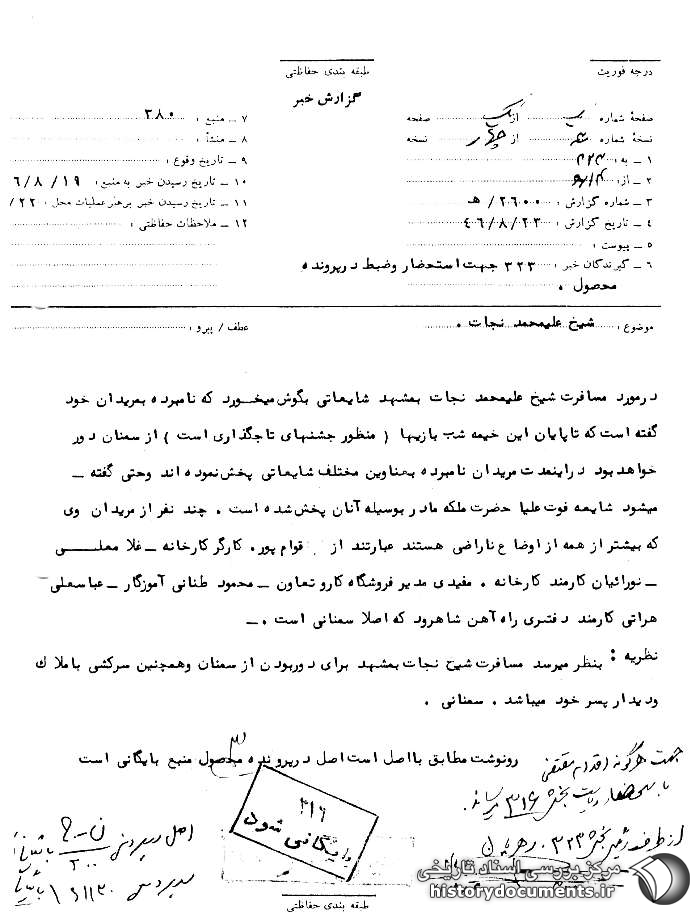 درجه فوریت
طبقه بندی حفاظتی
گزارش خبر
صفحهٔ شماره از صفحه
نسخهٔ شماره از چهار نسخه
۱ – به: ۳۲۳
۲ – از:
۳ – شماره گزارش: ۲۶۰۰/هـ
۴ – تاریخ گزارش: ۴۶/۸/۲۳
۵ – پیوست:
۶ – گیرندگان خبر: ۳۲۳ جهت استحضار وضبط در پرونده
محصول .
۷ – منبع: ۳۸۰
۸ – منشأ:
۹ – تاریخ وقوع:
۱۰ – تاریخ رسیدن خبر به منبع: ۶/۸/۱۹
۱۱ – تاریخ رسیدن خبر برهبر عملیات محل: /۲۲
۱۲ – ملاحظات حفاظتی:
موضوع: شیخ علیمحمد نجات .
عطف / پیرو:
درمورد مسافرت شیخ علیمحمد نجات بمشهد شایعاتی بگوش میخورد که نامبرده بمریدان خود
گفته است که تا پایان این خیمه شب بازیها ( منظور جشنهای تاجگذاری است ) از سمنان دور
خواهد بود در اینمدت مریدان نامبرده بعناوین مختلف شایعاتی پخش نموده اند وحتی گفته –
میشود شایعه فوت علیا حضرت ملکه مادر بوسیله آنان پخش شده است . چند نفر از مریدان وی
که بیشتر از همه از اوضاع ناراضی هستند عبارتند از قوام پور. کارگر کارخانه – غلامعلی
– نورائیان کارمند کارخانه . مفیدی مدیر فروشگاه کارو تعاون – محمود طنانی آموزگار – عباسعلی
هراتی کارمند دفتری راه آهن شاهرود که اصلا سمنانی است . –
نظریه : بنظر میرسد مسافرت شیخ نجات بمشهد برای دوربودن از سمنان وهمچنین سرکشی باملاك
ودیدار پسر خود میباشد . سمنانی .
رونوشت مطابق با اصل است اصل در پرونده محصول منبع بایگانی است
جهت هرگونه اقدام مقتضی
بخش ۳۱۶
از طرف بخش ۳۲۳.
۳۱۶
بایگانی شود
اصل
طبقه بندی حفاظتی
مرکز بررسی اسناد تاریخی
historydocuments.ir